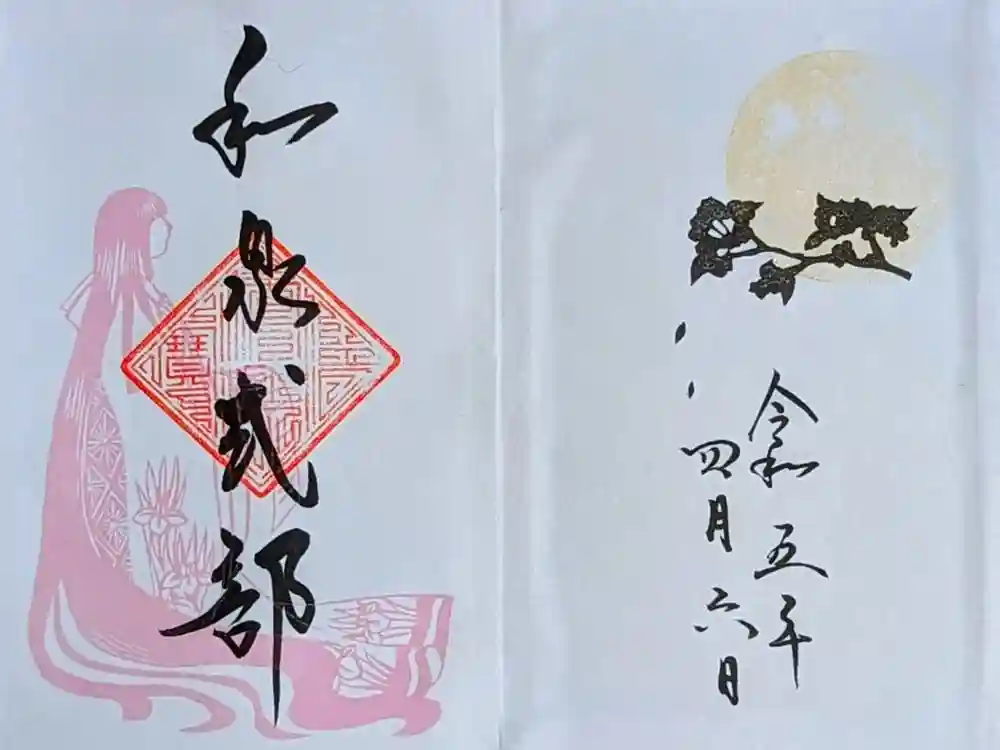 和泉式部
令和五年
四月六日